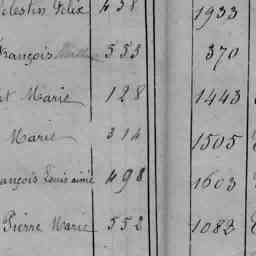 Celestin Felix 438 1933
François 553 370
Marie 128 1443
Marie 314 1505
François Louis aimé 498 1603
Pierre Marie 552 1082